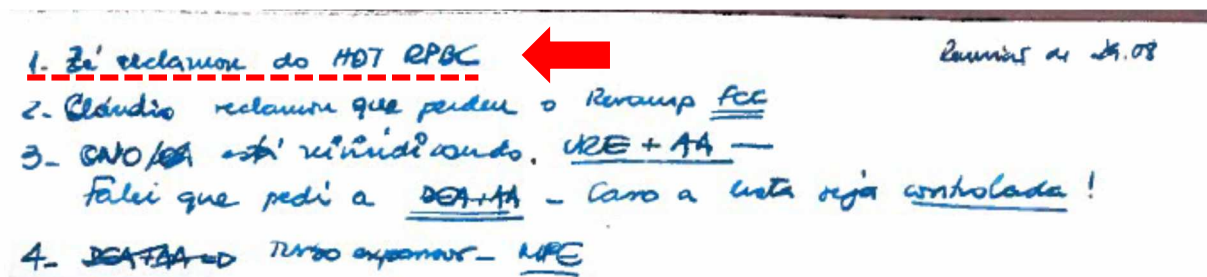 1. Zé reclamou do HDT RPBC
Reunião de 29.08
2. Cláudio reclamou que perdeu o Revamp FCC
3- CNO/OA está reinvidicando. URE + AA —
Falei que pedi a DEA+AA - Caso a lista seja controlada!
4- DEA+AA Turbo expansor - MPE